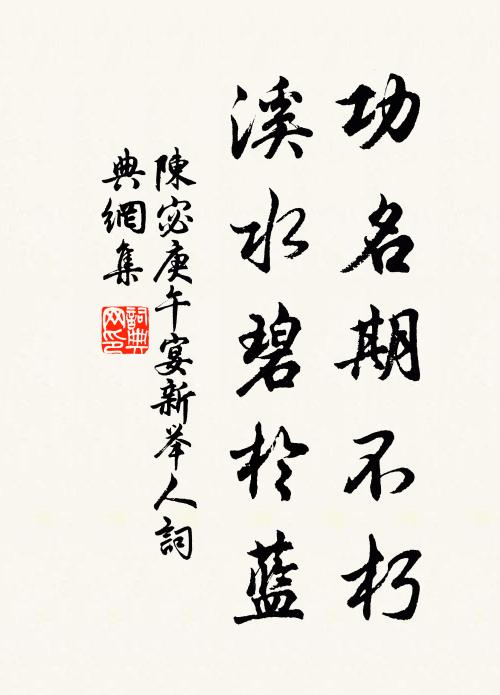 功名期不朽
溪水碧於藍
陳宓庚午宴新举人詞
典網集
詞典网印